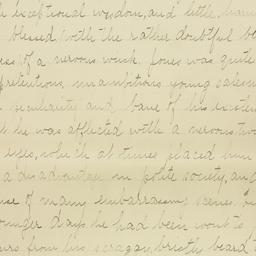 exceptional wisdom, and little
blessed with the rather doubtful
of a nervous wink. Jones was quite
unambitious young
peculiarity and bane of his
he was affected with a nervous
eyes, which at times placed him
a disadvantage in polite society, and
of many embarrassing scenes.
days he had been wont to
from his scraggy, bristly beard